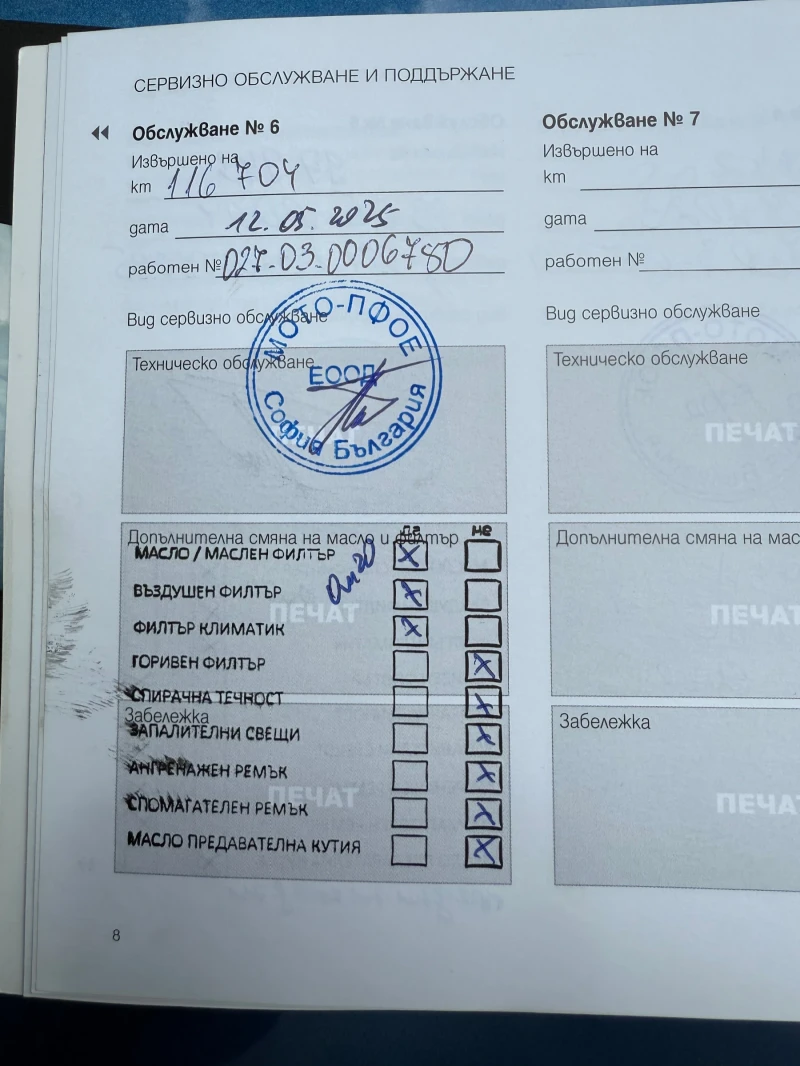 СЕРВИЗНО ОБСЛУЖВАНЕ И ПОДДЪРЖАНЕ
Обслужване № 6
Извършено на
км 116 704
дата 12.05.2025
работен № 027-03-0006780
Вид сервизно обслужване
Техническо обслужване
МОТО-ПФОЕ
ЕООД
София България
ПЕЧАТ
Допълнителна смяна на масло и филтър
да не
МАСЛО / МАСЛЕН ФИЛТЪР X
ВЪЗДУШЕН ФИЛТЪР X
ПЕЧАТ
ФИЛТЪР КЛИМАТИК X
ГОРИВЕН ФИЛТЪР X
СПИРАЧНА ТЕЧНОСТ X
Забележка
ЗАПАЛИТЕЛНИ СВЕЩИ X
АНГРЕНАЖЕН РЕМЪК X
ПЕЧАТ
СПОМАГАТЕЛЕН РЕМЪК X
МАСЛО ПРЕДАВАТЕЛНА КУТИЯ X
8
Обслужване № 7
Извършено на
км
дата
работен №
Вид сервизно обслужване
Техническо обслужване
ПЕЧАТ
Допълнителна смяна на мас
ПЕЧАТ
Забележка
ПЕЧАТ